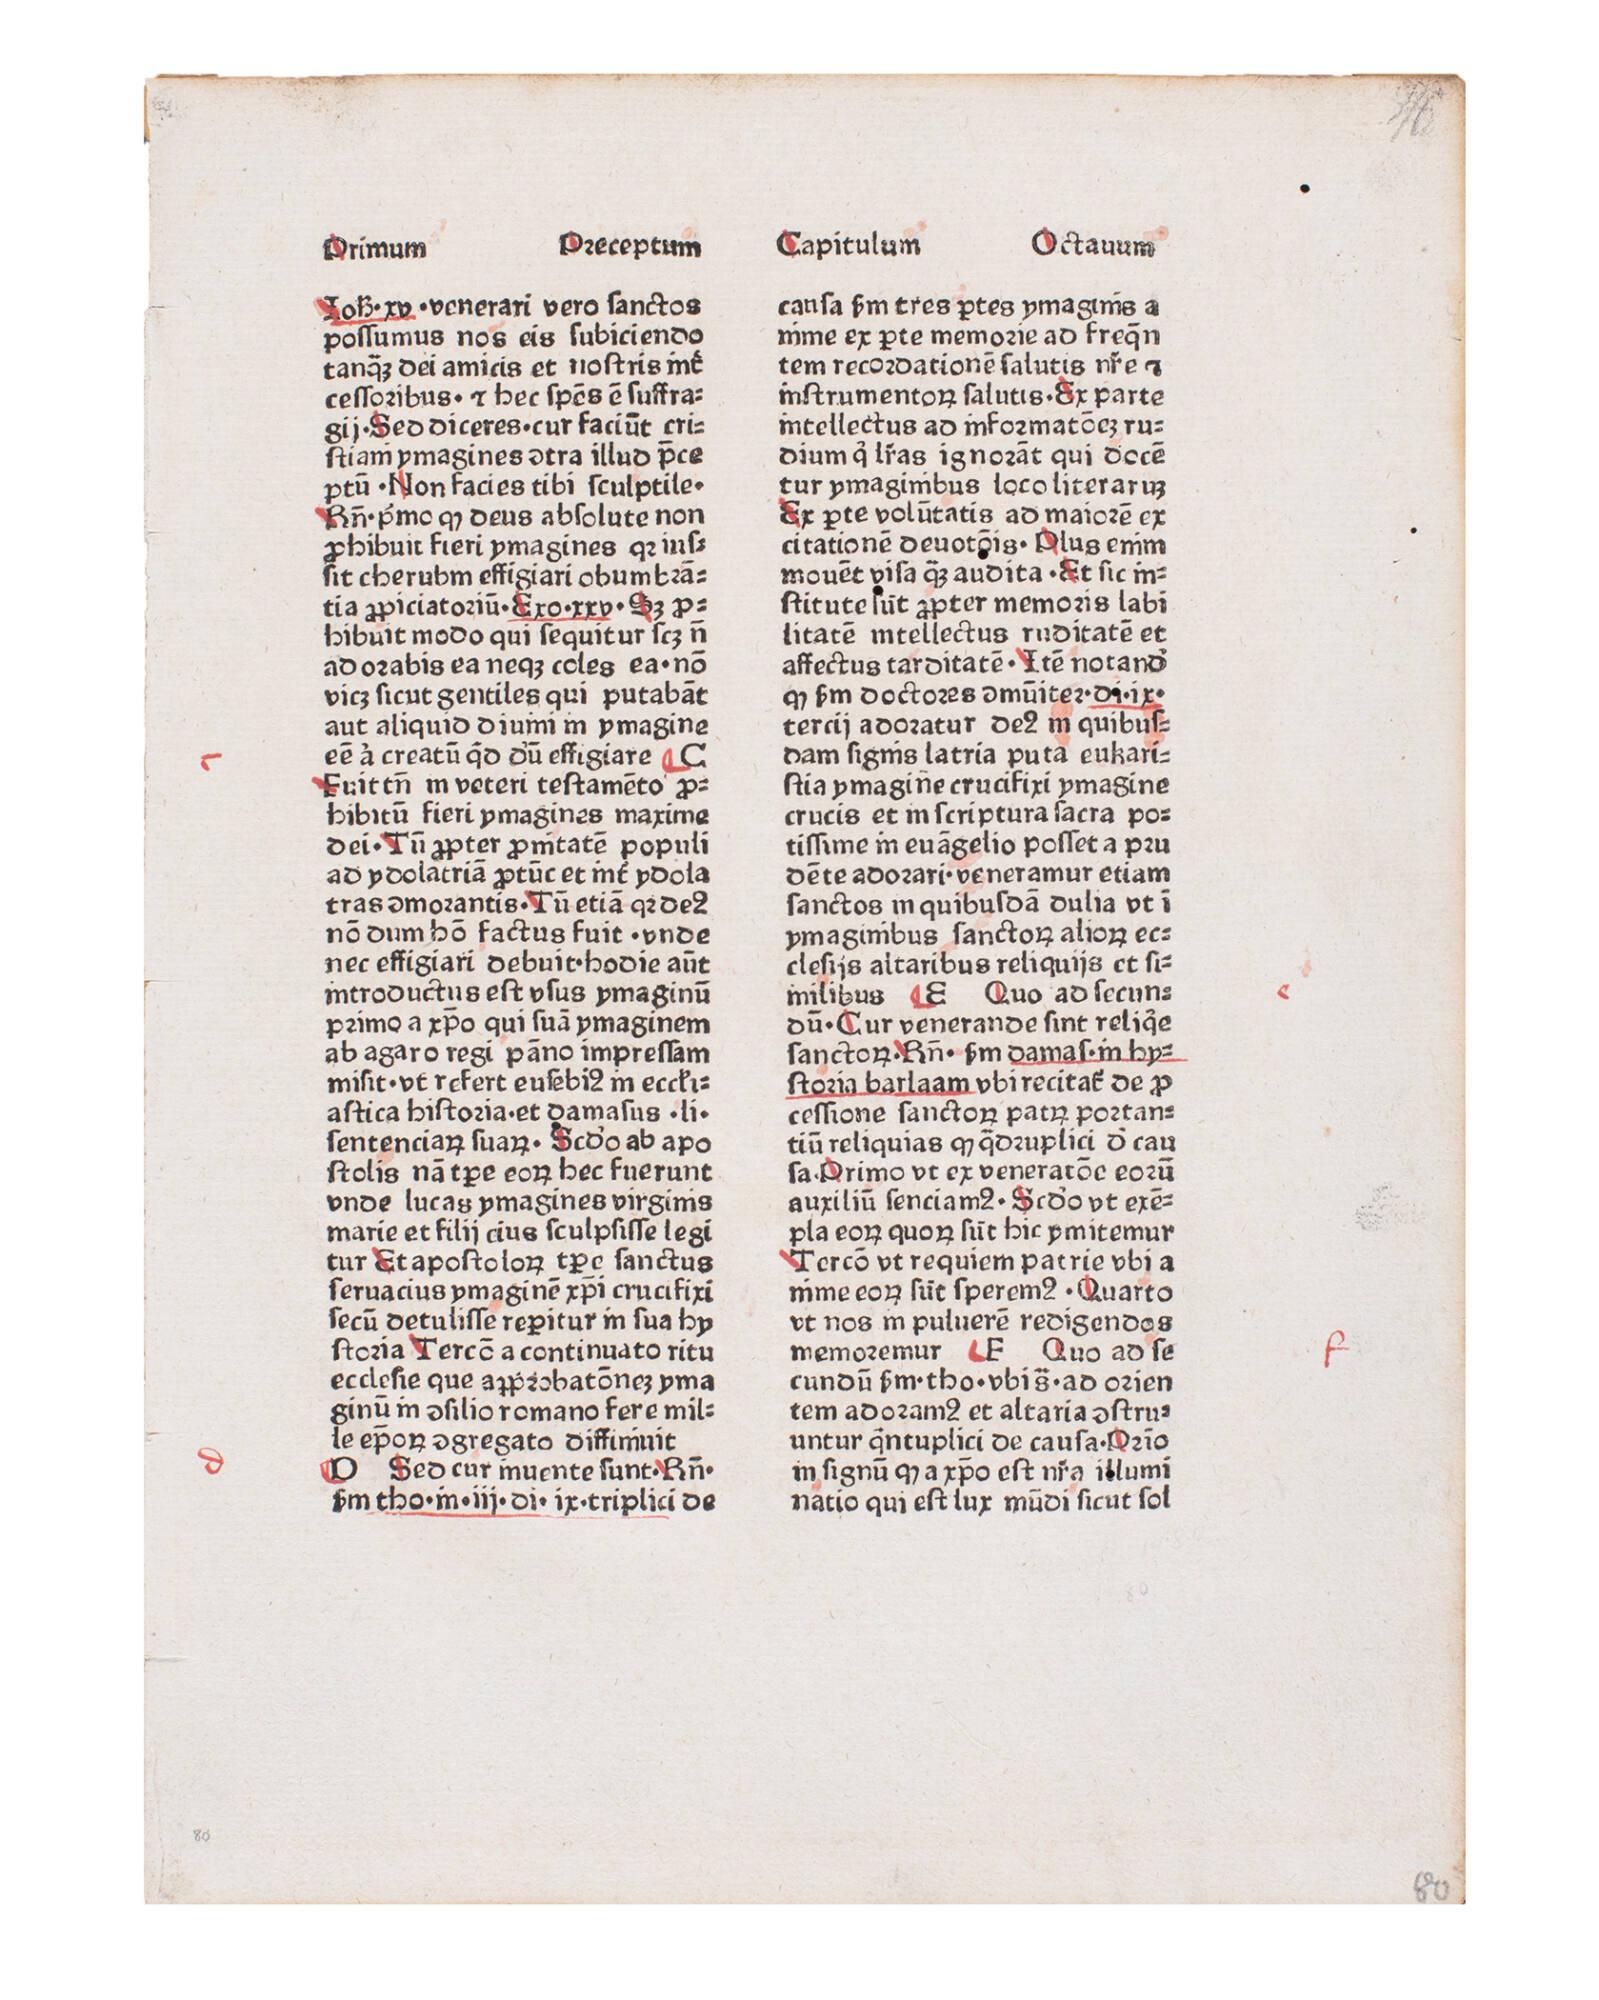 Primum Preceptum Capitulum Octauum
Ioħ·xv·venerari vero sanctos
possumus nos eis subiciendo
tanq̄ʒ dei amicis et nostris int̄
cessoribus·⁊ hec spēs ē suffra⸗
gij·Sed diceres·cur faciūt cri⸗
stiani ymagines ꝯtra illud p̄ce
ptū·Non facies tibi sculptile·
Rn̄·p̓mo ꝙ deus absolute non
ꝓhibuit fieri ymagines qꝛ ius⸗
sit cherubin effigiari obumbrā⸗
tia ꝓpiciatoriū·Exo·xxv·Sʒ ꝓ⸗
hibuit modo qui sequitur scʒ n̄
adorabis ea neqʒ coles ea·nō
vicʒ sicut gentiles qui putabāt
aut aliquid diuini in ymagine
eē ꝉ creatū q̄d dū effigiare C
Fuit tn̄ in veteri testamēto ꝓ⸗
hibitū fieri ymagines maxime
dei·Tū ꝓpter ꝓnitatē populi
ad ydolatriā ꝓtūc et int̄ ydola
tras ꝯmorantis·Tū etiā qꝛ deꝰ
nō dum hō factus fuit·vnde
nec effigiari debuit·hodie aūt
introductus est vsus ymaginū
primo a xp̄o qui suā ymaginem
ab agaro regi pāno impressam
misit·vt refert eusebiꝰ in eccl̄i⸗
astica historia·et damasus·li·
sentenciaꝝ suaꝝ·Scd̓o ab apo
stolis nā tꝑe eoꝝ hec fuerunt
vnde lucas ymagines virginis
marie et filij eius sculpsisse legi
tur Et apostoloꝝ tꝑe sanctus
seruacius ymaginē xp̄i crucifixi
secū detulisse reꝑitur in sua hy
storia Tercō a continuato ritu
ecclesie que aꝓprobatōneʒ yma
ginū in ꝯsilio romano fere mil⸗
le ep̄oꝝ ꝯgregato diffiniuit
D Sed cur inuente sunt·Rn̄·
ẜm tho·in·iij·di·ix·triplici de
causa ẜm tres ꝑtes ymaginis a
nime ex ꝑte memorie ad freq̄n
tem recordationē salutis nr̄e ⁊
instrumentoꝝ salutis·Ex parte
intellectus ad informatōeʒ ru⸗
dium q̓ lr̄as ignorāt qui docē
tur ymaginibus loco literaruʒ
Ex ꝑte volūtatis ad maiorē ex
citationē deuotōis·Plus enim
mouēt visa q̄ʒ audita·Et sic in⸗
stitute sūt ꝓpter memoris labi
litatē intellectus ruditatē et
affectus tarditatē·Itē notand̓
ꝙ ẜm doctores ꝯmūiter·di·ix·
tercij adoratur deꝰ in quibus⸗
dam signis latria puta eukari⸗
stia ymagīe crucifixi ymagine
crucis et in scriptura sacra po⸗
tissime in euāgelio posset a pru
dēte adorari·veneramur etiam
sanctos in quibusdā dulia vt ī
ymaginibus sanctoꝝ alioꝝ ec⸗
clesijs altaribus reliquijs et si⸗
milibus E Quo ad secun⸗
dū·Cur venerande sint reliq̓e
sanctoꝝ·Rn̄·ẜm damas·in hy⸗
storia barlaam vbi recitat̄ de ꝓ
cessione sanctoꝝ patꝝ portan⸗
tiū reliquias ꝙ q̄druplici d̓ cau
sa·Primo vt ex veneratōe eorū
auxiliū senciamꝰ·Scd̓o vt exē⸗
pla eoꝝ quoꝝ sūt hic ymitemur
Tercō vt requiem patrie vbi a
nime eoꝝ sūt speremꝰ·Quarto
vt nos in puluerē redigendos
memoremur F Quo ad se
cundū ẜm·tho·vbi s̄·ad orien
tem adoramꝰ et altaria ꝯstru⸗
untur q̄ntuplici de causa·Prīo
in signū ꝙ a xp̄o est nr̄a illumi
natio qui est lux mūdi sicut sol
d
e
f
80
80